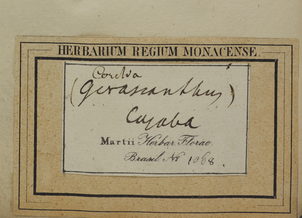 HERBARIUM REGIUM MONACENSE
Cordia
(Gerascanthus)
Cujaba
Martii Herbar. Florae
Brasil. No. 1068.